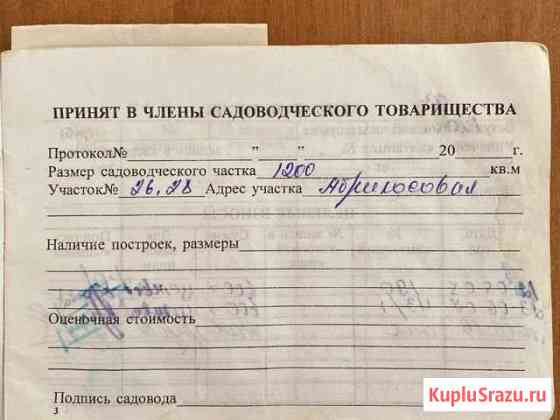 ПРИНЯТ В ЧЛЕНЫ САДОВОДЧЕСКОГО ТОВАРИЩЕСТВА
Протокол№ " " 20 г.
Размер садоводческого частка 1200 кв.м
Участок№ 26,28 Адрес участка Абрикосовая
Наличие построек, размеры
Оценочная стоимость
Подпись садовода
3
KupluSrazu.ru